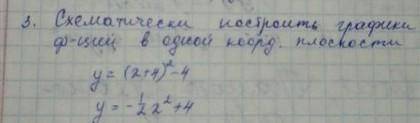 3. Схематически построить графики
ф-ций в одной коорд. плоскости
y = (x+4)² - 4
y = -½x² + 4